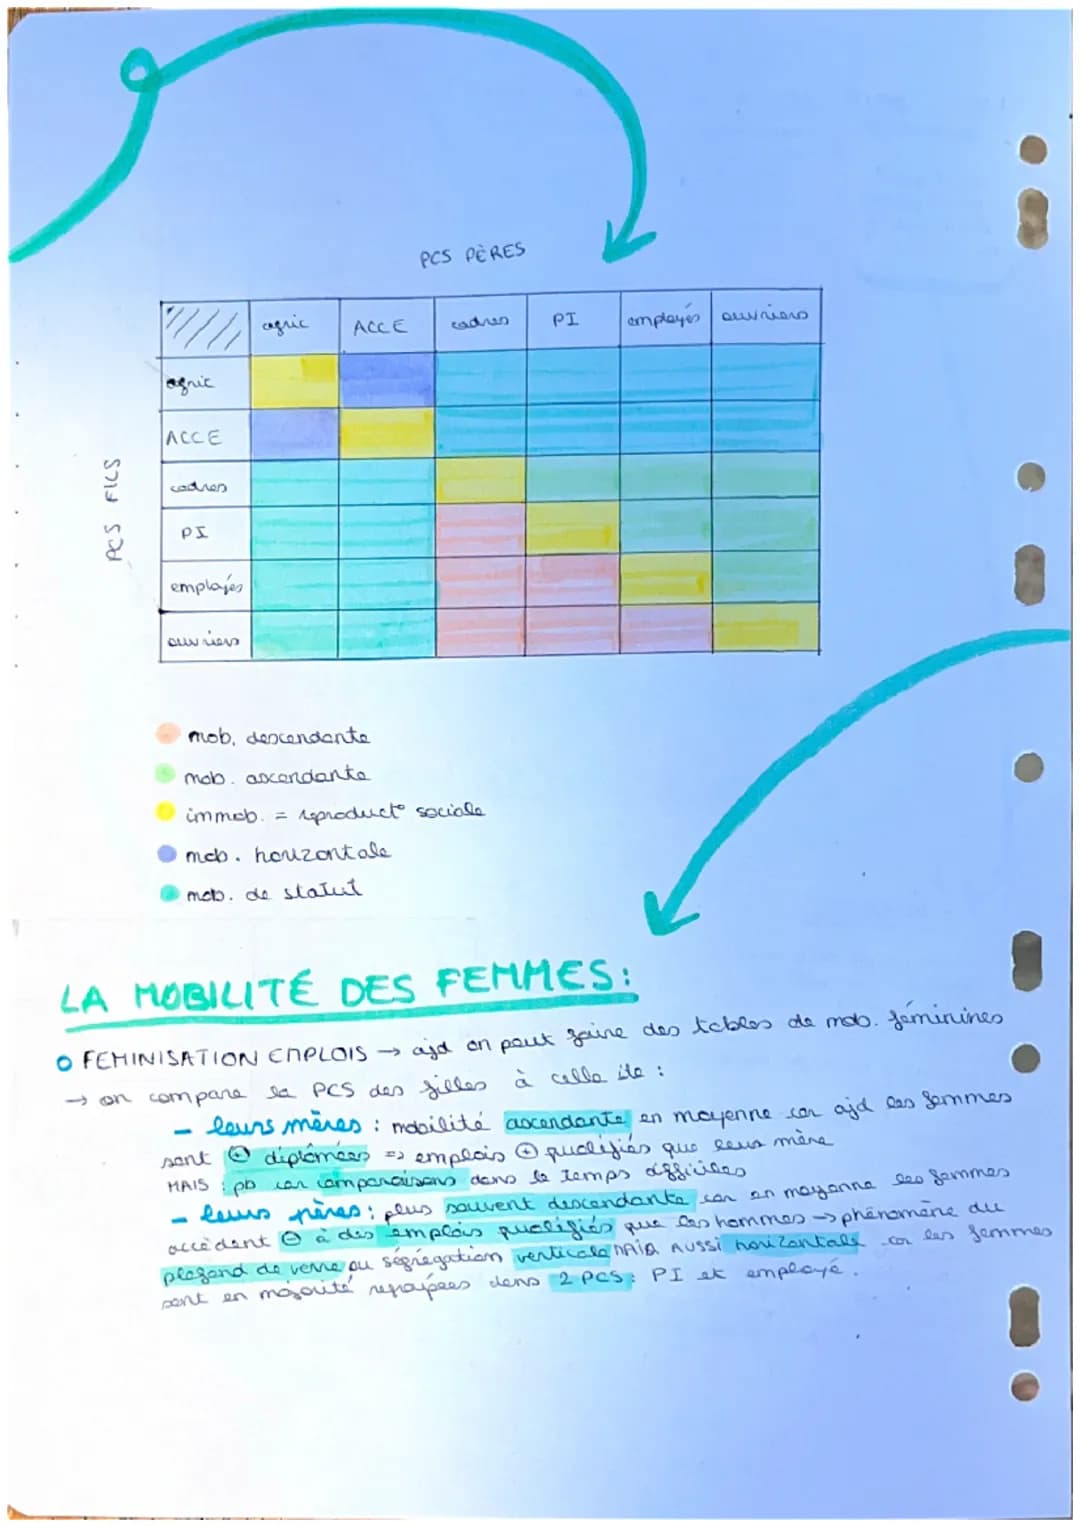 PCS PÈRES
agric ACCE cadres PI employés ouvriers
agric
ACCE
cadres
PI
employés
ouvriers
PCS FILS
mob. descendante
mob. ascendante
immob. = reproduct° sociale
mob. horizontale
mob. de statut
LA MOBILITÉ DES FEMMES:
FEMINISATION EMPLOIS → ajd on peut faire des tables de mob. féminines
→ on compare la PCS des filles à celle de :
- leurs mères : mobilité ascendante en moyenne car ajd les femmes
sont ⊕ diplômées => emplois ⊕ qualifiés que leur mère
MAIS : pb car comparaisons dans le temps difficiles
- leurs pères : plus souvent descendante car en moyenne les femmes
accèdent ⊖ à des emplois qualifiés que les hommes → phénomène du
plafond de verre ou ségrégation verticale MAIS AUSSI horizontale car les femmes
sont en majorité regroupées dans 2 PCS : PI et employé.